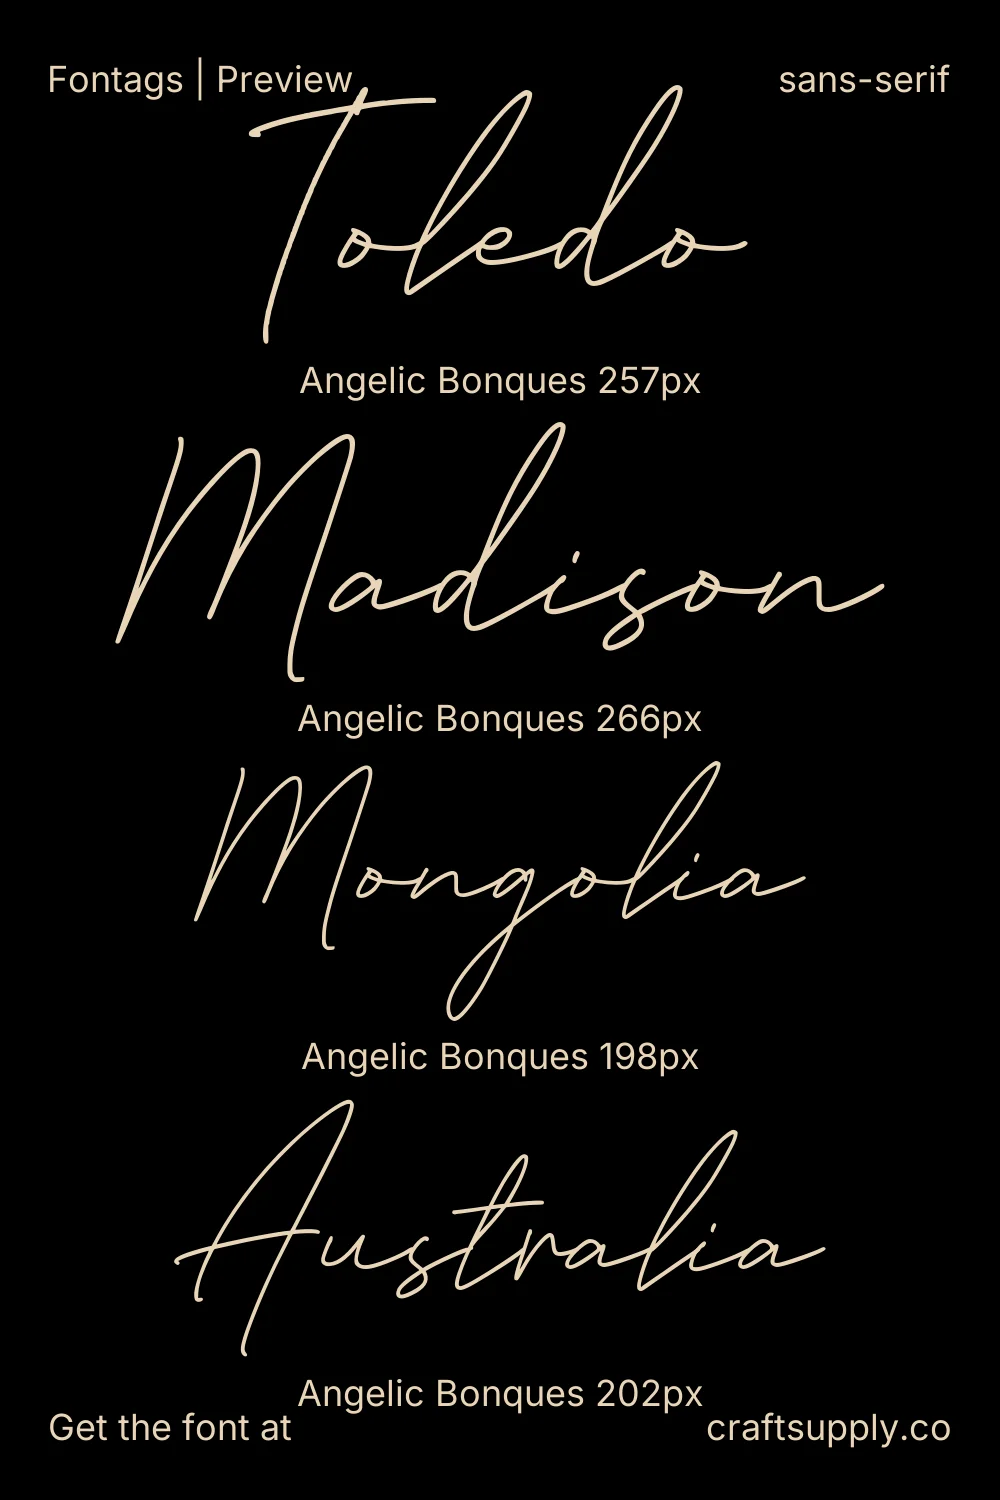 Fontags | Preview
sans-serif
Toledo
Angelic Bonques 257px
Madison
Angelic Bonques 266px
Mongolia
Angelic Bonques 198px
Australia
Angelic Bonques 202px
Get the font at
craftsupply.co